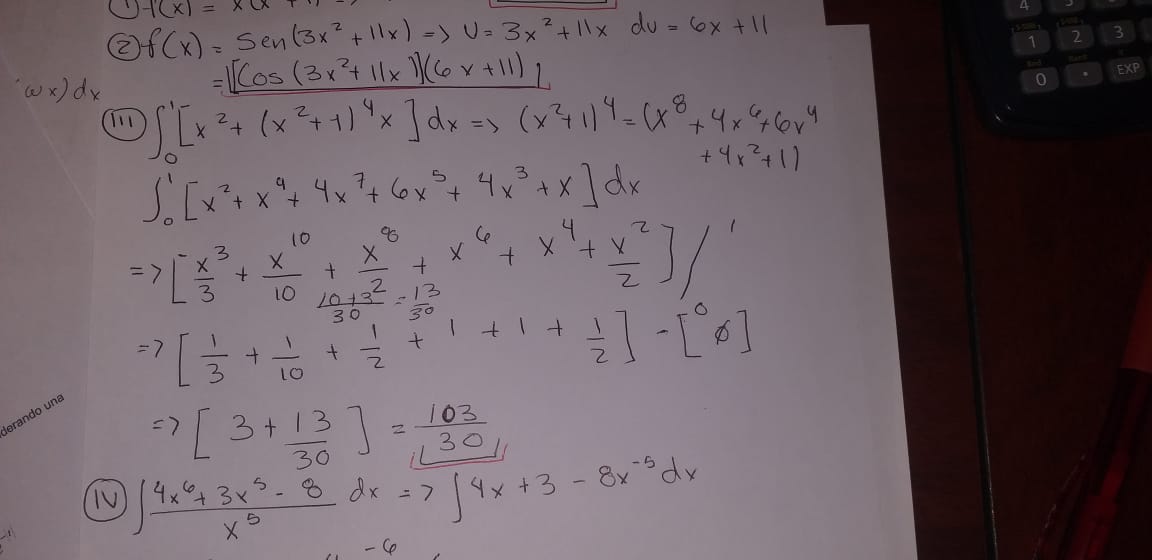 ① f(x) =
② f(x) = Sen(3x² + 11x) => U = 3x² + 11x du = 6x + 11
= [Cos(3x² + 11x)](6x + 11)
wx) dx
III ∫₀¹ [x² + (x² + 1)⁴ x] dx => (x² + 1)⁴ = (x⁸ + 4x⁶ + 6x⁴
+ 4x² + 1)
∫₀¹ [x² + x⁹ + 4x⁷ + 6x⁵ + 4x³ + x] dx
=> [x³/3 + x¹⁰/10 + x⁸/2 + x⁶ + x⁴ + x²/2] / ¹
10+3/30 = 13/30
=> [1/3 + 1/10 + 1/2 + 1 + 1 + 1/2] - [0]
=> [3 + 13/30] = 103/30
derando una
IV ∫ 4x⁶ + 3x⁵ - 8 / x⁵ dx => ∫ 4x + 3 - 8x⁻⁵ dx
4
1 2 3
0 . EXP